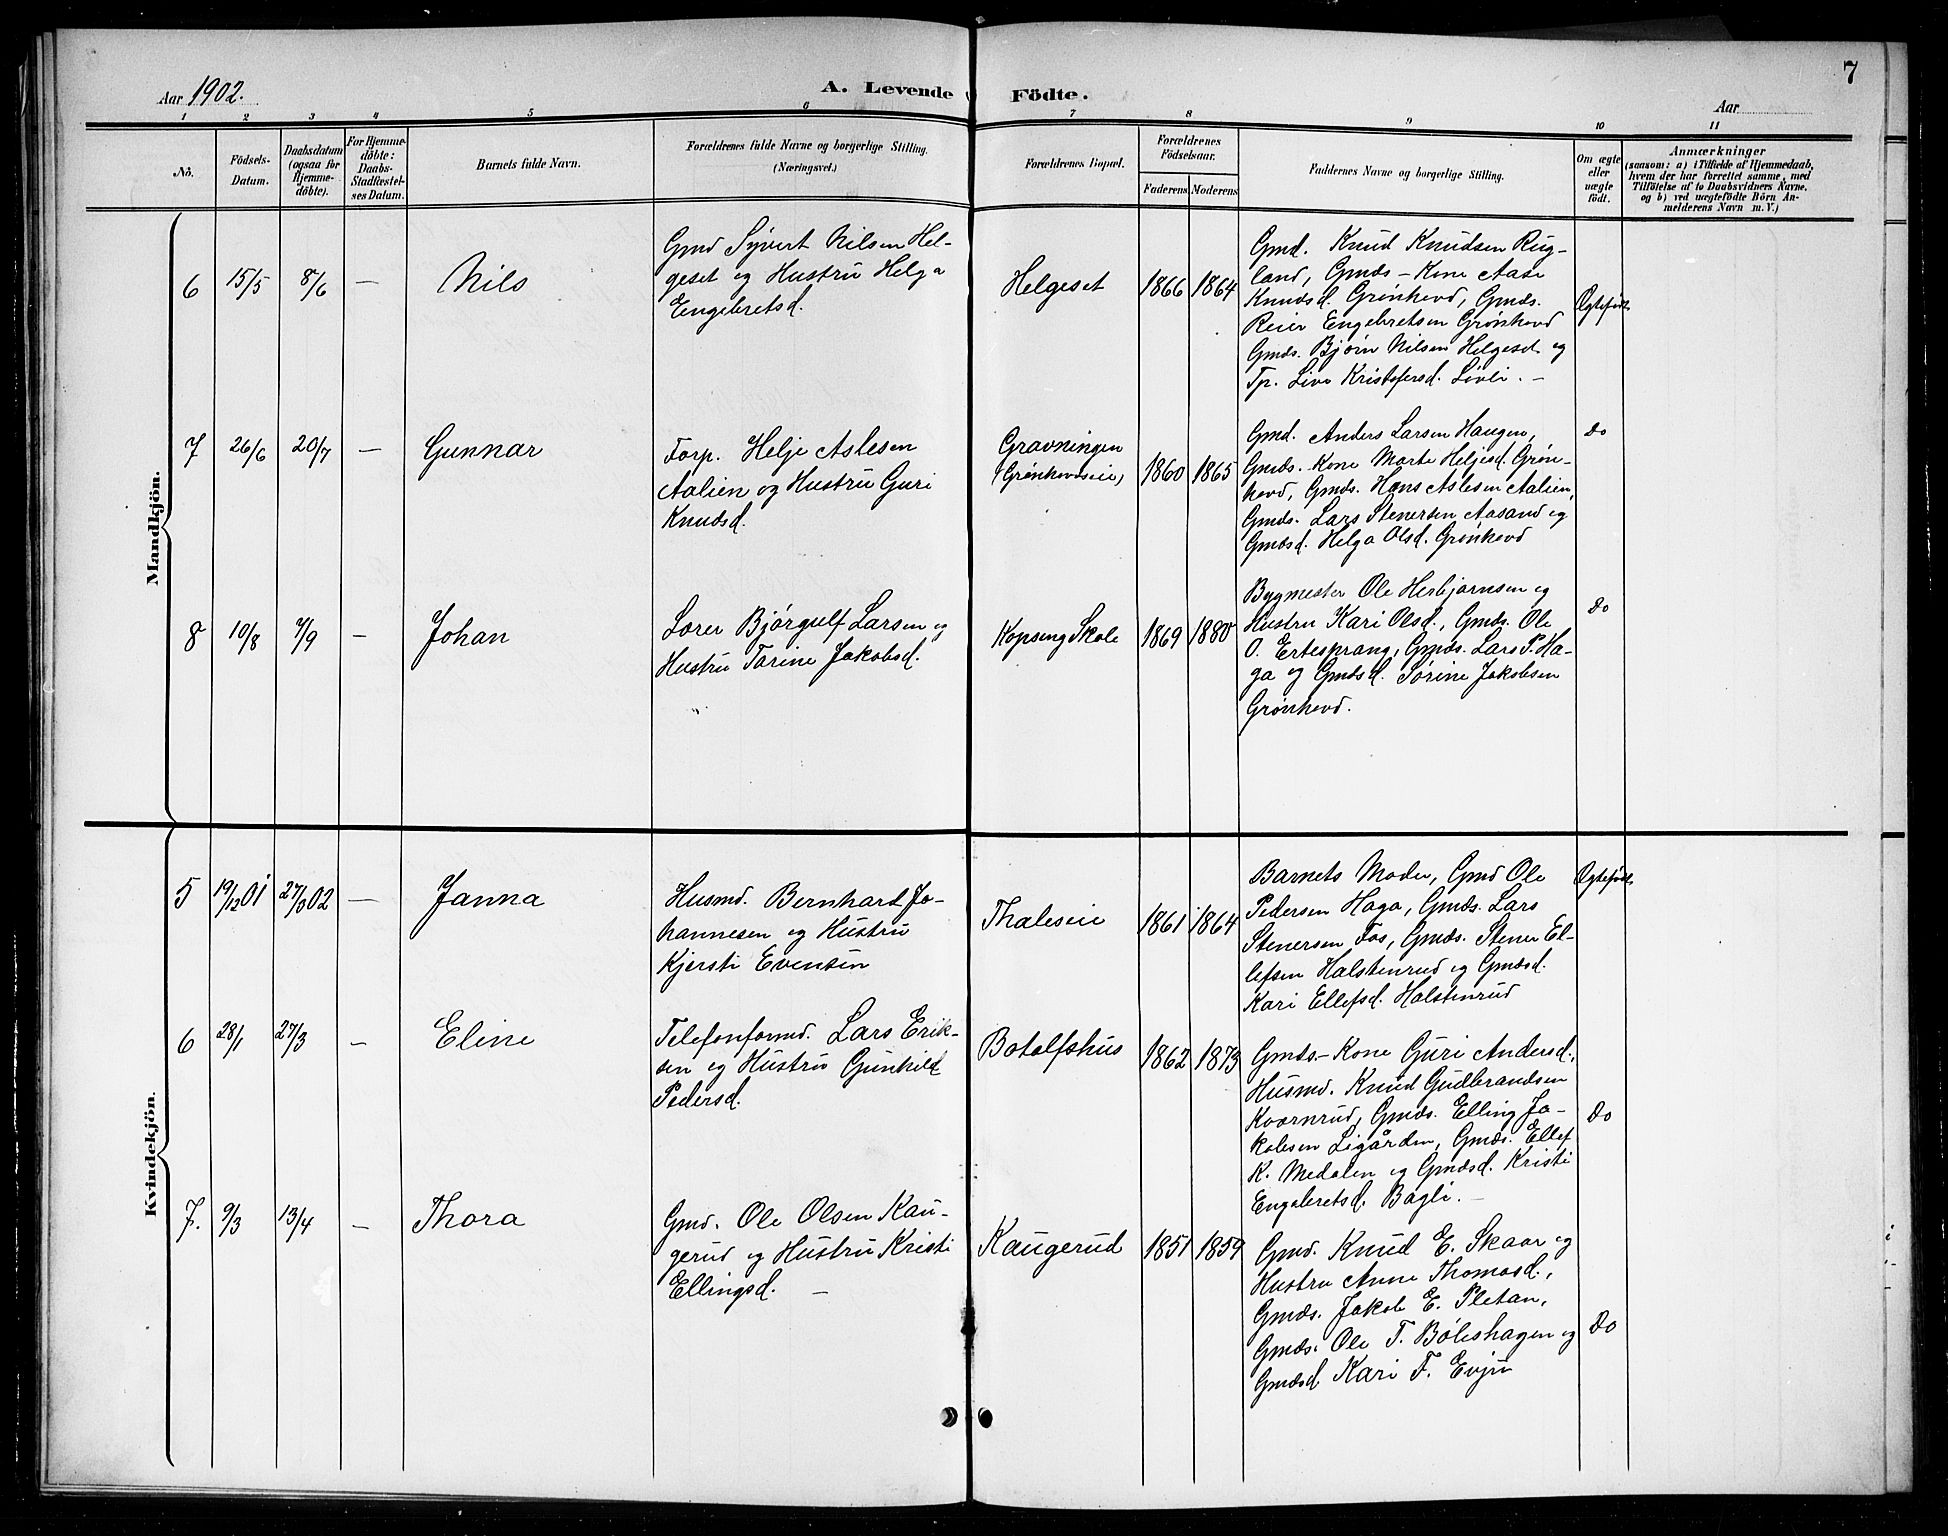 7
Aar 1902.
A. Levende Födte.
Aar
1 2 3 4 5 6 7 8 9 10 11
No.
Födsels-
Datum.
Daabsdatum
(ogsaa for
Hjemme-
döbte).
For Hjemme-
döbte:
Daabs-
Stadfæstel-
ses Datum.
Barnets fulde Navn.
Forældrenes fulde Navne og borgerlige Stilling.
(Næringsvei.)
Forældrenes Bopæl.
Forældrenes
Födselsaar.
Faderens Moderens
Faddernes Navne og borgerlige Stilling.
Om ægte
eller
uægte
födt.
Anmærkninger
(saasom: a) i Tilfælde af Hjemmedaab,
hvem der har forrettet samme, med
Tilföielse af to Daabsvidners Navne.
og b) ved uægtefödte Börn An-
melderens Navn m. V.)
Mandkjön.
6 15/5 8/6 — Nils
Gmd Syvert Nilsen Hel-
geset og Hustru Helga
Engebretsd.
Helgeset 1866 1864
Gmd. Knud Knudsen Rug-
land, Gmds-Kone Aase
Knudsd. Grønhovd, Gmds.
Reier Engebretsen Grønhovd
Gmds. Bjørn Nilsen Helgesd. og
Tp. Live Kristofersd. Løvli. —
Ægtefødt
7 26/6 20/7 — Gunnar
Forp. Helje Aslesen
Aalien og Hustru Guri
Knudsd.
Gravningen
(Grønhovdseie)
1860 1865
Gmd. Anders Larsen Haugen,
Gmds. Kone Marte Heljesd. Grøn-
hovd, Gmds. Hans Aslesen Aalien,
Gmds. Lars Stenersen Aasand og
Gmdsd. Helga Olsd. Grønhovd
Do
8 10/8 7/9 — Johan
Lærer Bjørgulf Larsen og
Hustru Torine Jakobsd.
Kopseng Skole 1869 1880
Bygmester Ole Herbjørnsen og
Hustru Kari Olsd., Gmds. Ole
O. Ertesprang, Gmds. Lars P. Ha-
ga og Gmdsd. Sørine Jakobsen
Grønhovd.
Do
Kvindekjön.
5 19/12 01 27/3 02 — Janna
Husmd. Bernhard Jo-
hannesen og Hustru
Kjersti Evensen
Thaleseie 1861 1864
Barnets Moder, Gmd Ole
Pedersen Haga, Gmds. Lars
Stenersen Fos, Gmds. Stener El-
lefsen Halstenrud og Gmdsd.
Kari Ellefsd. Halstenrud
Ægtefødt
6 28/1 27/3 — Eline
Telefonformd. Lars Erik-
sen og Hustru Gunhild
Pedersd.
Botolfshus 1862 1873
Gmds-Kone Guri Andersd.,
Husmd. Knud Gudbrandsen
Kvarnrud, Gmds. Elling Ja-
kobsen Ligården, Gmds. Ellef
K. Medalen og Gmdsd. Kristi
Engebretsd. Bagli. —
Do
7. 9/3 13/4 — Thora
Gmd. Ole Olsen Kau-
gerud og Hustru Kristi
Ellingsd. —
Kaugerud 1851 1859
Gmd. Knud E. Skaar og
Hustru Anne Thomasd.,
Gmds. Jakob E. Pletan,
Gmds. Ole T. Bøleshagen og
Gmdsd Kari F. Evju
Do